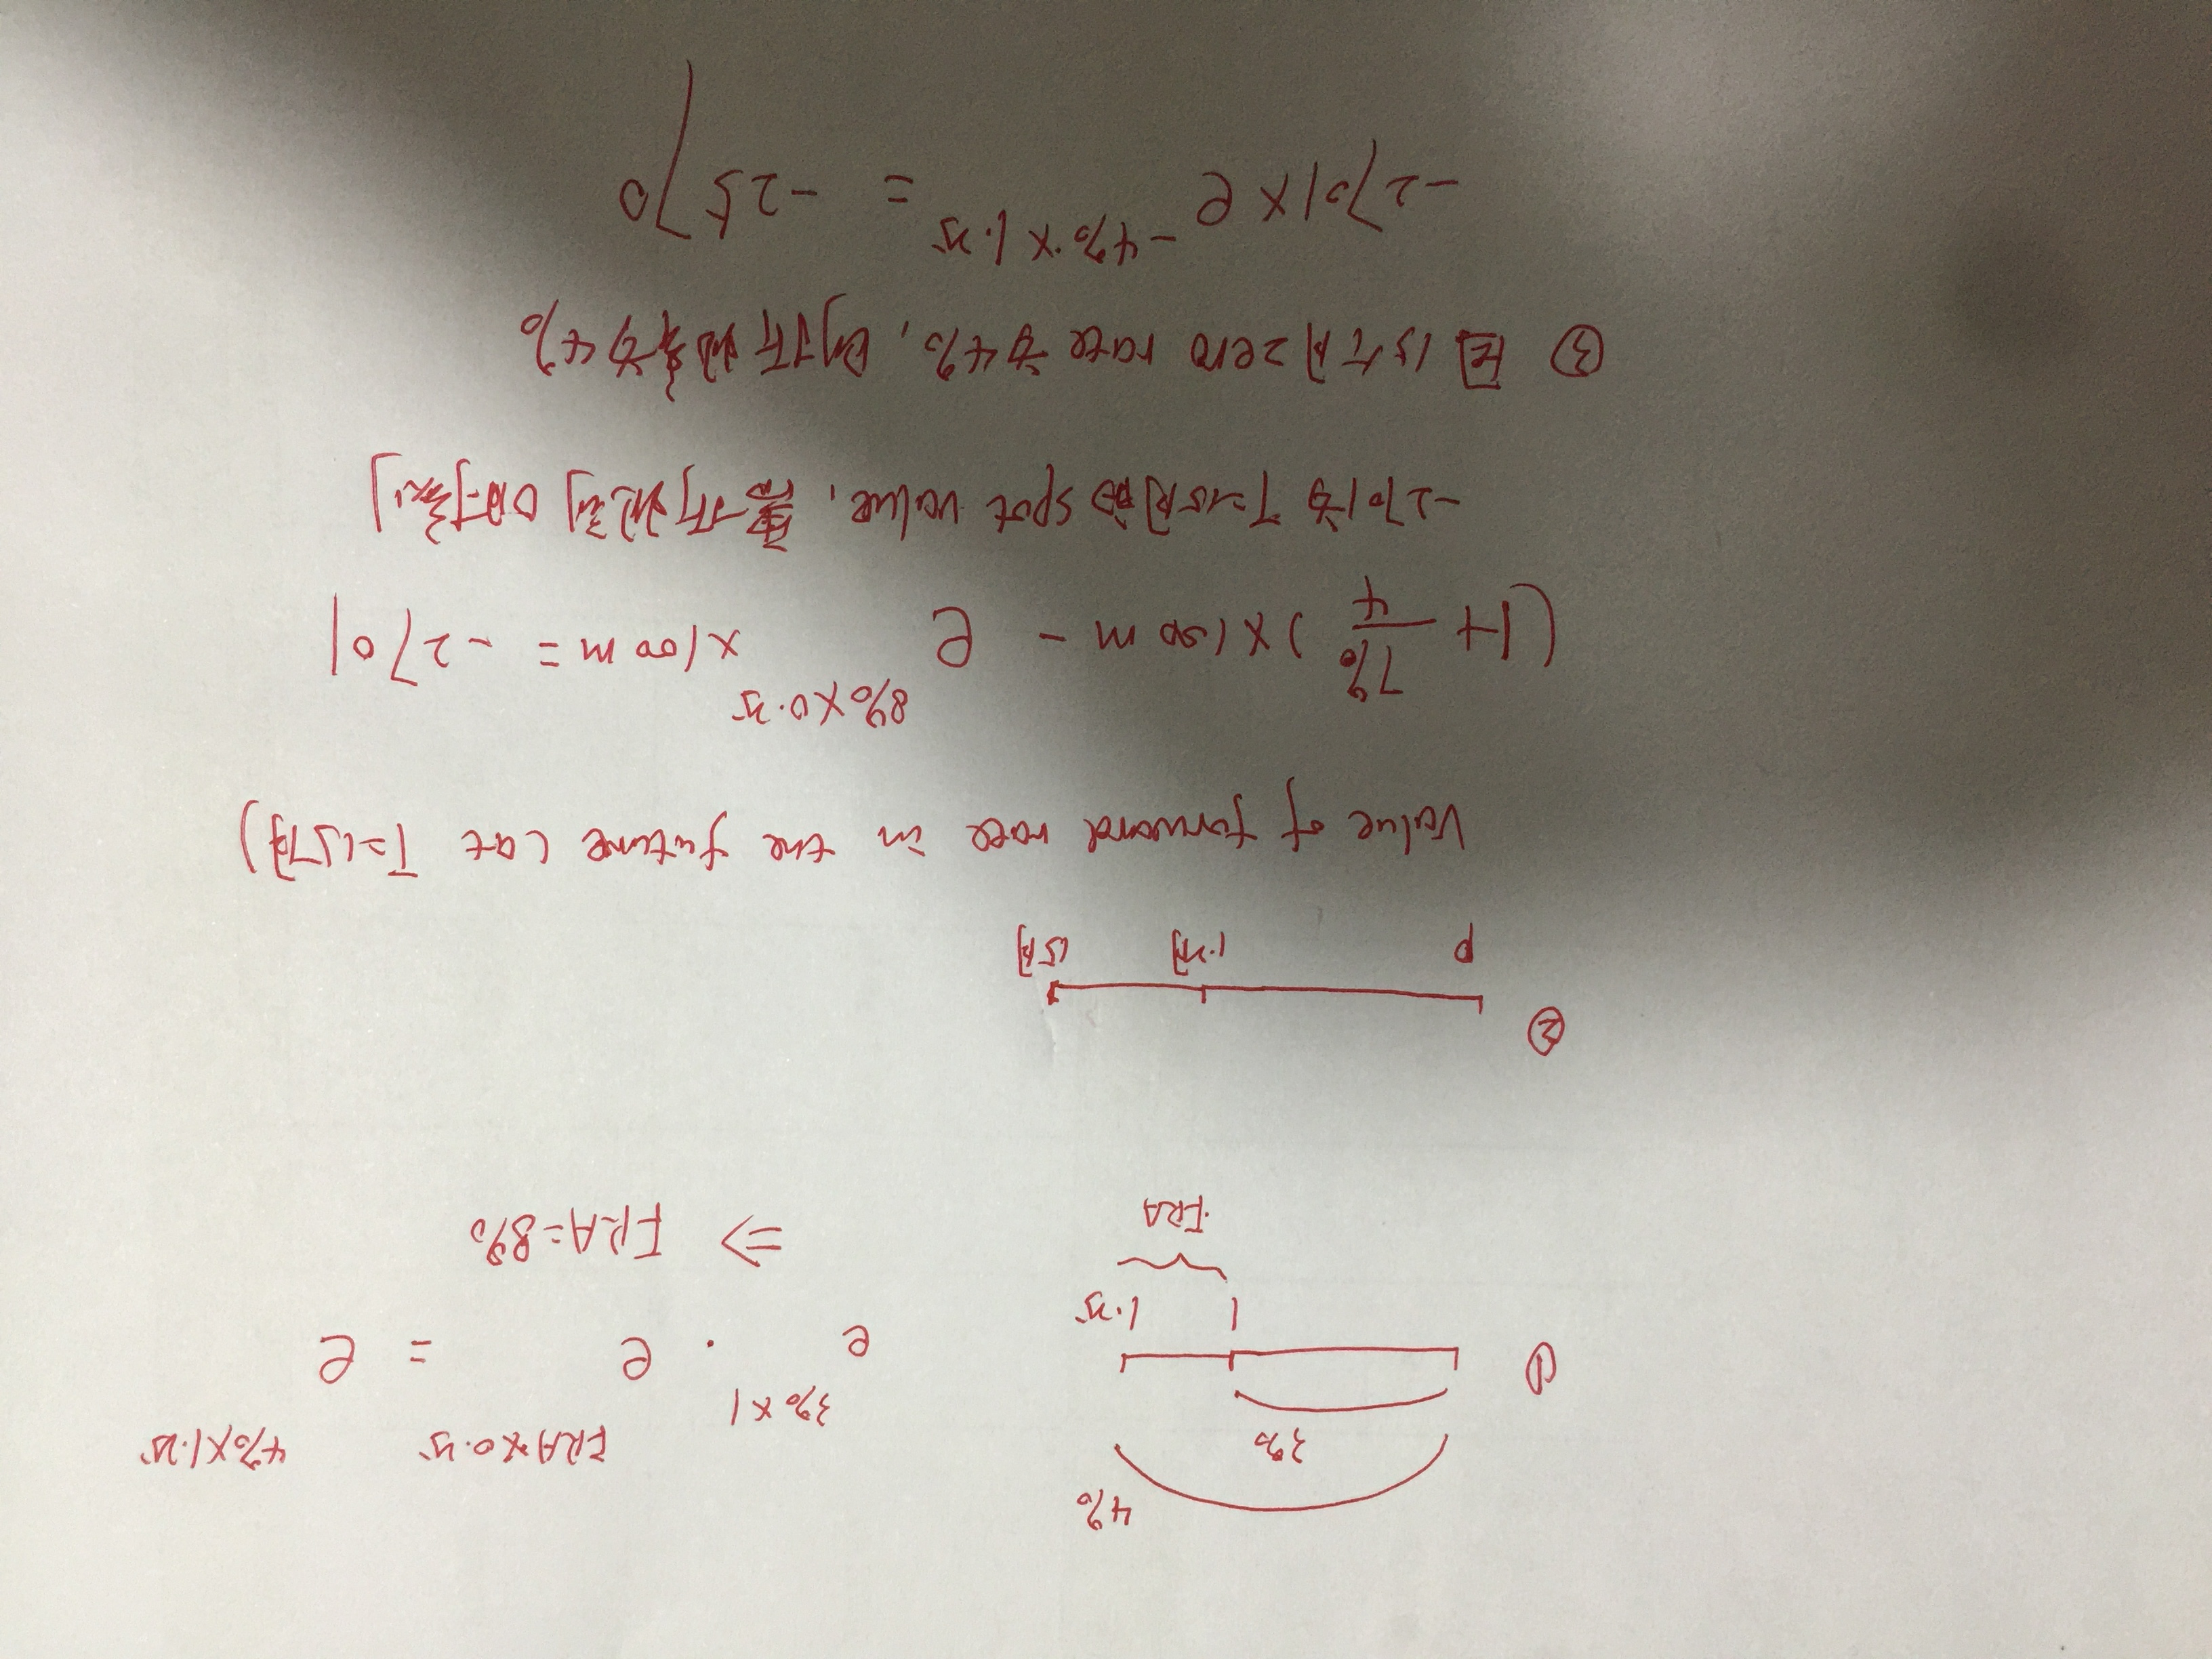 ①
4%
3%
1
1.25
FRA
e^{3%×1} · e^{FRA×0.25} = e^{4%×1.25}
⇒ FRA=8%
②
0
15月
Value of forward rate in the future (at T=15月)
(1+ 7%/4 )×100 m - e^{8%×0.25} ×100 m = -2701
-2701为 T=15月的 spot value,
③ 因 15个月 zero rate 为4%, 则折现率为4%
-2701× e^{-4%×1.25} = -2570